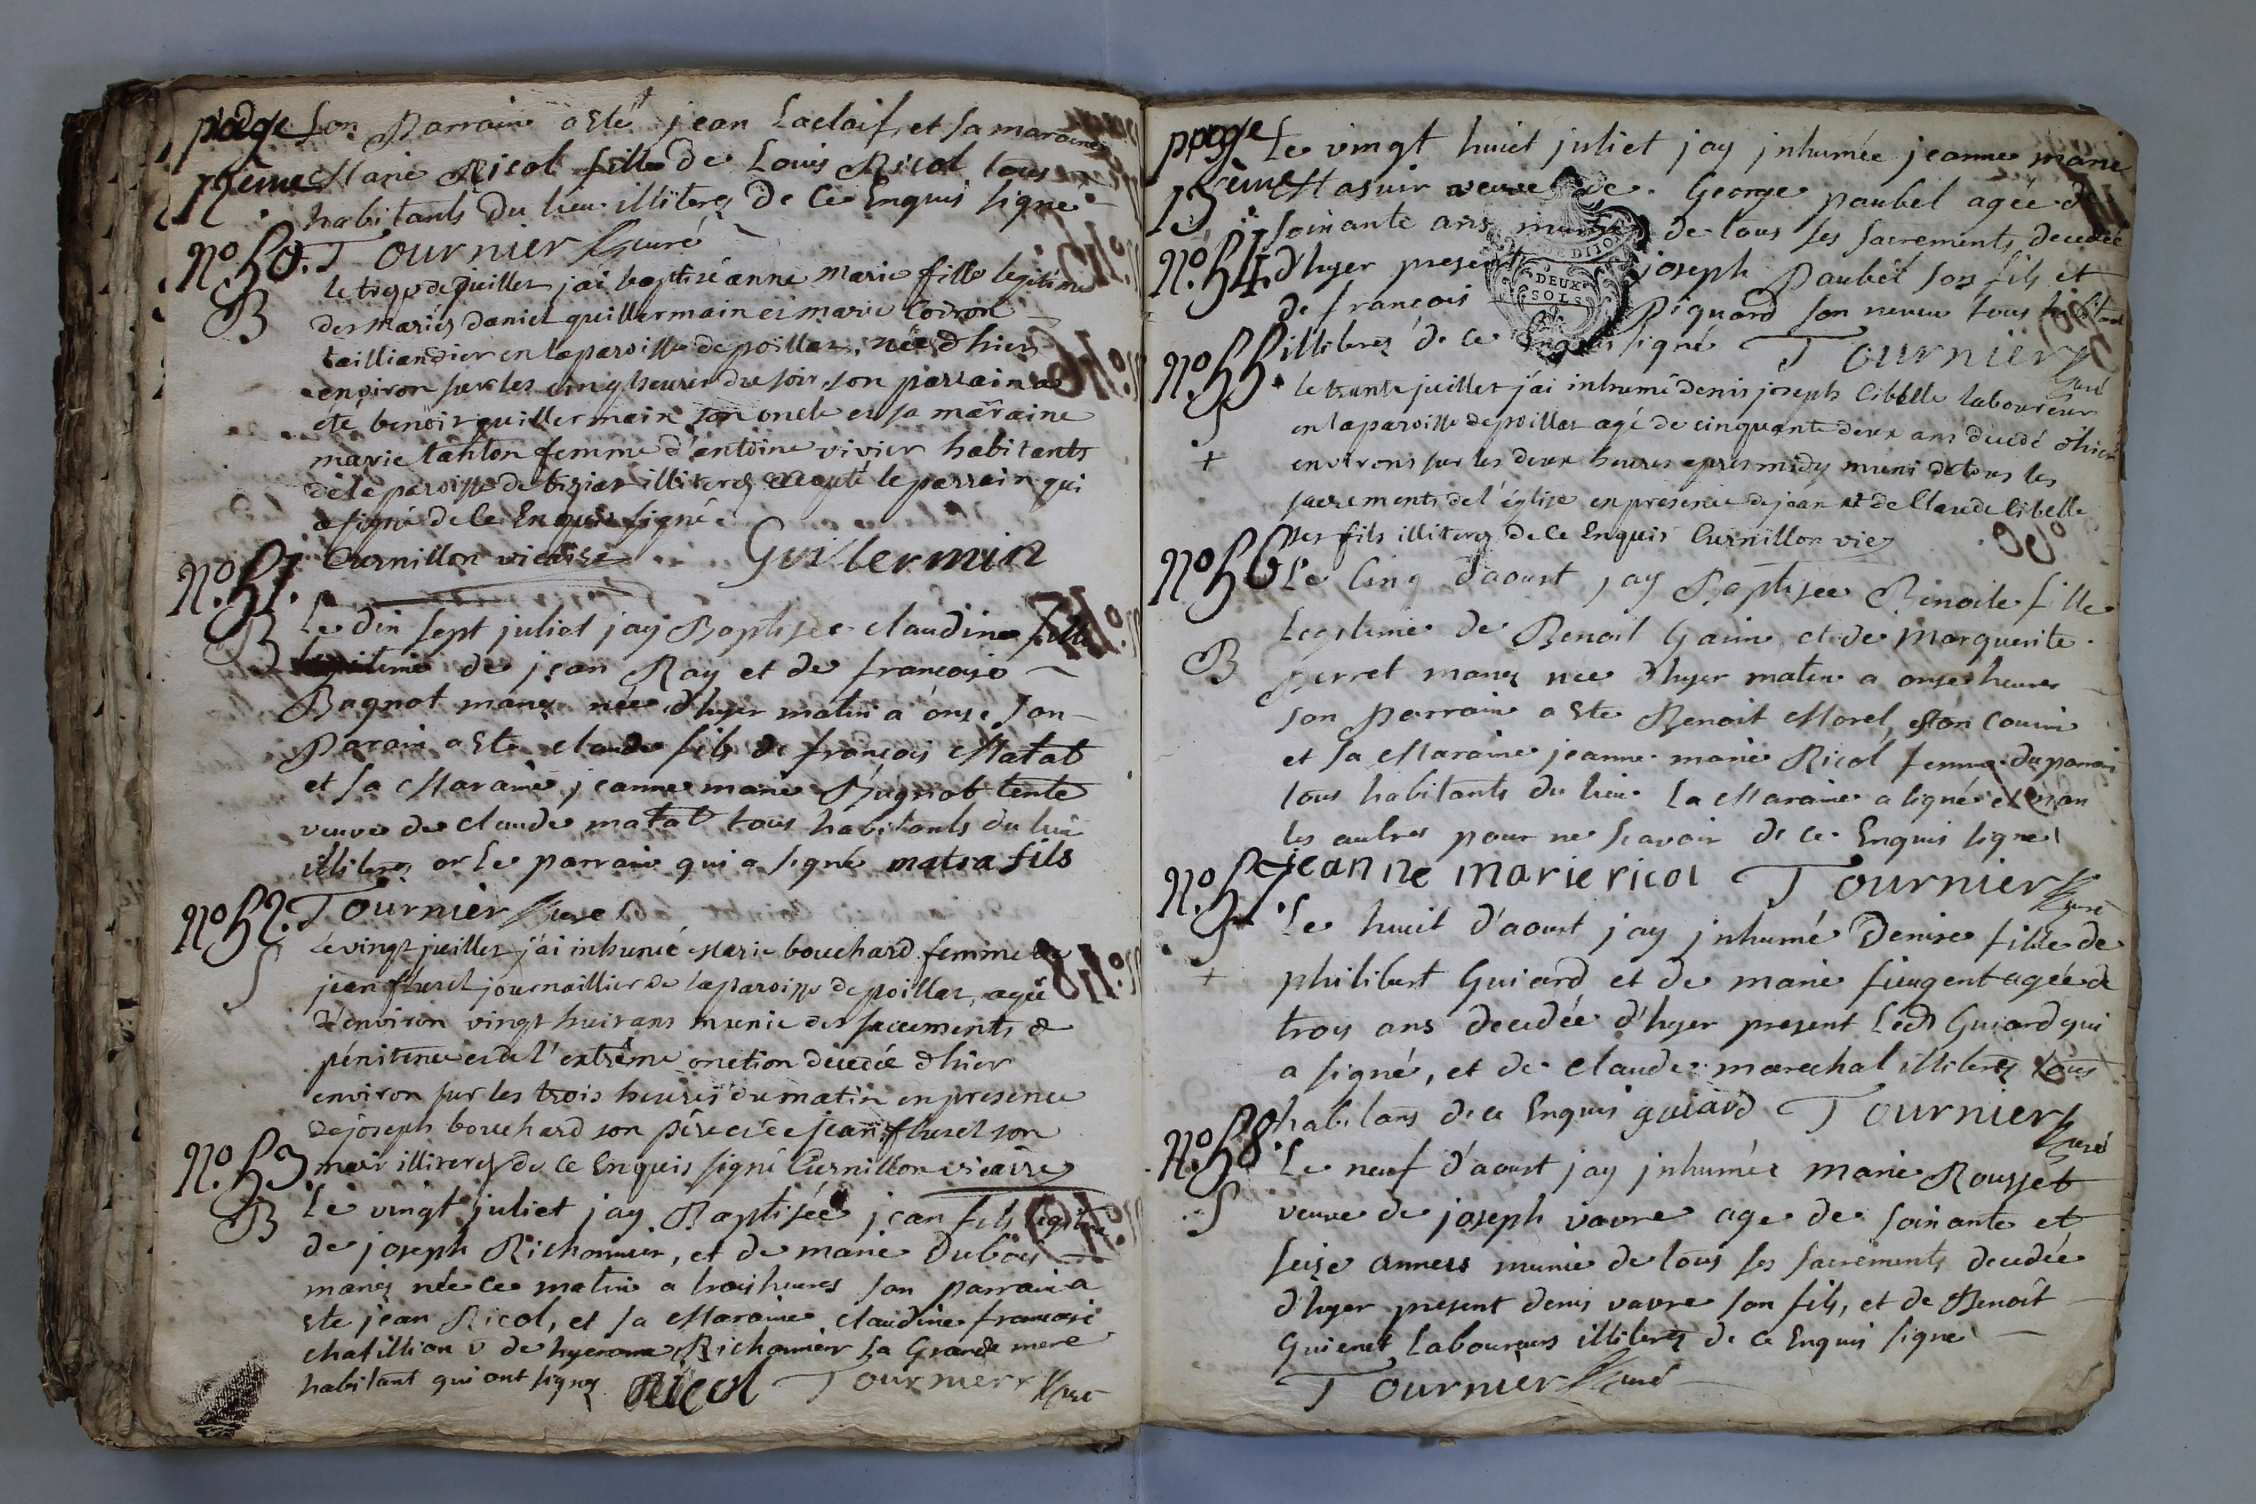 page Son Parrain a Eté jean Laclaif et sa maraine
12ème Marie Ricol fille de Louis Ricol tous
habitants du lieu illiterez de Ce Enquis signe
No. 50. Tournier Curé
B
le juillet j'ai baptisé anne marie fille legitime
des mariés daniel guillermain et marie Codron
tailliandier en la paroisse de poillat, née d'hier
environ sur les cinq heures du soir, son parrain a
été benoit guillermain son oncle et sa marraine
marie tanton femme d'antoine vivier habitants
de la paroisse de bisiat illiterez excepté le parrain qui
a signé de Ce Enquis signé.
Curnillon vicaire Guillermin
No. 51.
B
Le dix sept juliet jay Baptisée claudine fille
legitime de jean Ray et de françoise
Bugnot mariez née d'hyer matin a onse son
Parain a Eté claude fils de françois Matat
et sa Maraine jeanne marie Bugnot tente
veuve de claude matat tous habitants du lieu
illiterez or le parrain qui a signé matra fils
No. 52. Tournier Curé
S
Le vingt juillet j'ai inhumé Marie bouchard femme de
jean fluret journaillier de la paroisse de poillat, agée
d'environ vingt huit ans munie des sacrements de
pénitence et de l'extrême onction decedée d'hier
environ sur les trois heures du matin en presence
de joseph bouchard son père et de jean fluret son
No. 53 mari illiterez de Ce Enquis signé Curnillon vicaire
B
Le vingt juliet jay Baptisée jean fils legitime
de joseph Richonnier, et de marie Dubois
mariez née ce matin a trois heures son parrain a
Ete jean Ricol, et sa Maraine claudine françoise
chatillion v de hyerome Richonnier sa Grande mere
habitant qui ont signez Ricol Tournier Curé
page Le vingt huit juliet jay jnhumée jeanne marie
13ème Masuir veuve de George paubel agée de
soixante ans munie de tous ses sacrements decedée
No. 54. d'hyer present joseph Paubel son fils et
de françois Piquard son neveu tous habitant
DEUX
SOLS
illiterez de Ce Enquis signé Tournier Curé
No. 55.
S
+
le trente juillet j'ai inhumé denis joseph Cibelle laboureur
en la paroisse de poillat agé de cinquante deux ans decedé d'hier
environs sur les deux heures apres midy muni de tous les
sacrements de l'église en presence de jean et de Claude Cibelle
ses fils illiterez de Ce Enquis Curnillon vic
No. 56 Le Cinq d'aoust jay Baptisee Benoite fille
B
Legitime de Benoit Gavin et de Marguerite
perret mariez née d'hyer matin a onse heures
son parrain a Ete Benoit Morel, son Cousin
et sa Maraine jeanne marie Ricol femme du parrain
tous habitants du lieu la Maraine a signé et non
les autres pour ne scavoir de ce Enquis signe
jeanne marie ricol Tournier Curé
No. 57.
S
+
Le huit d'aoust jay jnhumé Denise fille de
philibert Guiard et de marie fiengent agée de
troy ans decedée d'hyer present Ledt Guiard qui
a signé, et de claude marechal illiterez tous
habitans de ce Enquis guiard Tournier Curé
No. 58.
S
Le neuf d'aoust jay jnhumée marie Rousset
veuve de joseph vavre age de soixante et
seise annees munie de tous ses sacrements decedée
d'hyer present denis vavre son fils, et de Benoit
Guienet Laboureurs illiterez de ce Enquis signe
Tournier Curé